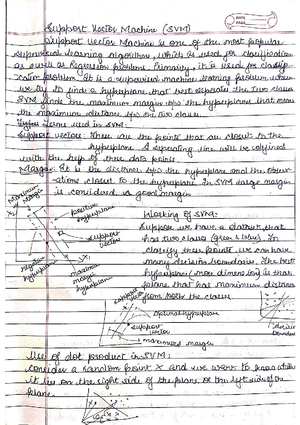 Support Vector Machine (SVM)
Support Vector Machine is one of the most popular
supervised learning algorithm, which is used for classification
as well as Regression problems. Primarily, it is used for classifi-
cation problem. It is a supervised machine learning problem where
we try to find a hyperplane that best separate the two classes
SVM finds the maximum margin b/w the hyperplane that means
the maximum distance b/w the two classes.
Types Terms used in SVM:-
Support vectors: These are the points that are closest to the
hyperplane. A separating line will be defined
with the help of these data points.
Margin: It is the distance b/w the hyperplane and the observ-
ations closest to the hyperplane. In SVM large margin
is considered a good margin
Maximum
Margin
positive
hyperplane
support
vector
maximum
margin
hyperplane
hyperplane
Working of SVM:
Suppose we have a dataset that
has two classes (green & blue). To
classify these points, we can have
many decision boundaries. The best
hyperplane (more dimensions) is that
plane that has maximum distance
from both the classes
support
optimal hyperplane
support
vector
maximized margin
Use of dot product in SVM:
Consider a random point X and we want to know whether
it lies on the right side of the plane or the left side of the
plane.